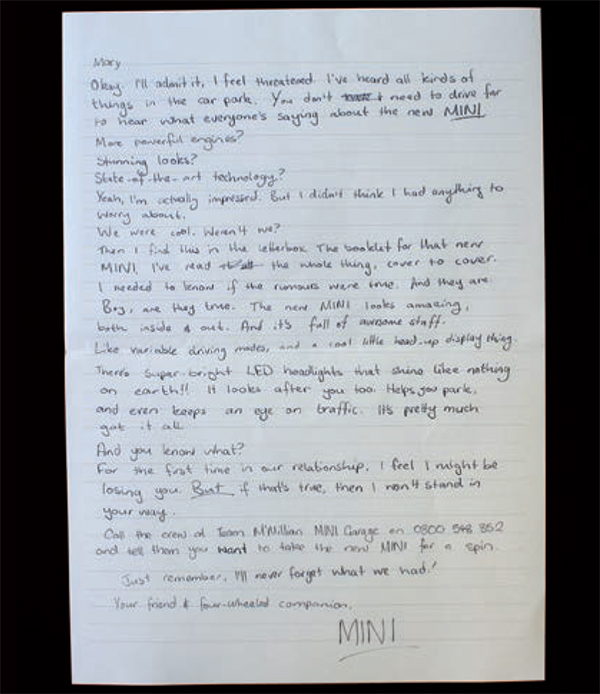 Mary
Okay. I'll admit it, I feel threatened. I've heard all kinds of
things in the car park. You don't need to drive far
to hear what everyone's saying about the new MINI.
More powerful engines?
Stunning looks?
State-of-the-art technology?
Yeah, I'm actually impressed. But I didn't think I had anything to
worry about.
We were cool. Weren't we?
Then I find this in the letterbox. The booklet for that new
MINI. I've read the whole thing, cover to cover.
I needed to know if the rumours were true. And they are.
Boy, are they true. The new MINI looks amazing,
both inside & out. And it's full of awesome stuff.
Like variable driving modes, and a cool little head-up display thing.
There's super-bright LED headlights that shine like nothing
on earth!! It looks after you too. Helps you park,
and even keeps an eye on traffic. It's pretty much
got it all.
And you know what?
For the first time in our relationship, I feel I might be
losing you. But if that's true, then I won't stand in
your way.
Call the crew at Team McMillan MINI Garage on 0800 548 352
and tell them you want to take the new MINI for a spin.
Just remember, I'll never forget what we had!
Your friend & four-wheeled companion,
MINI